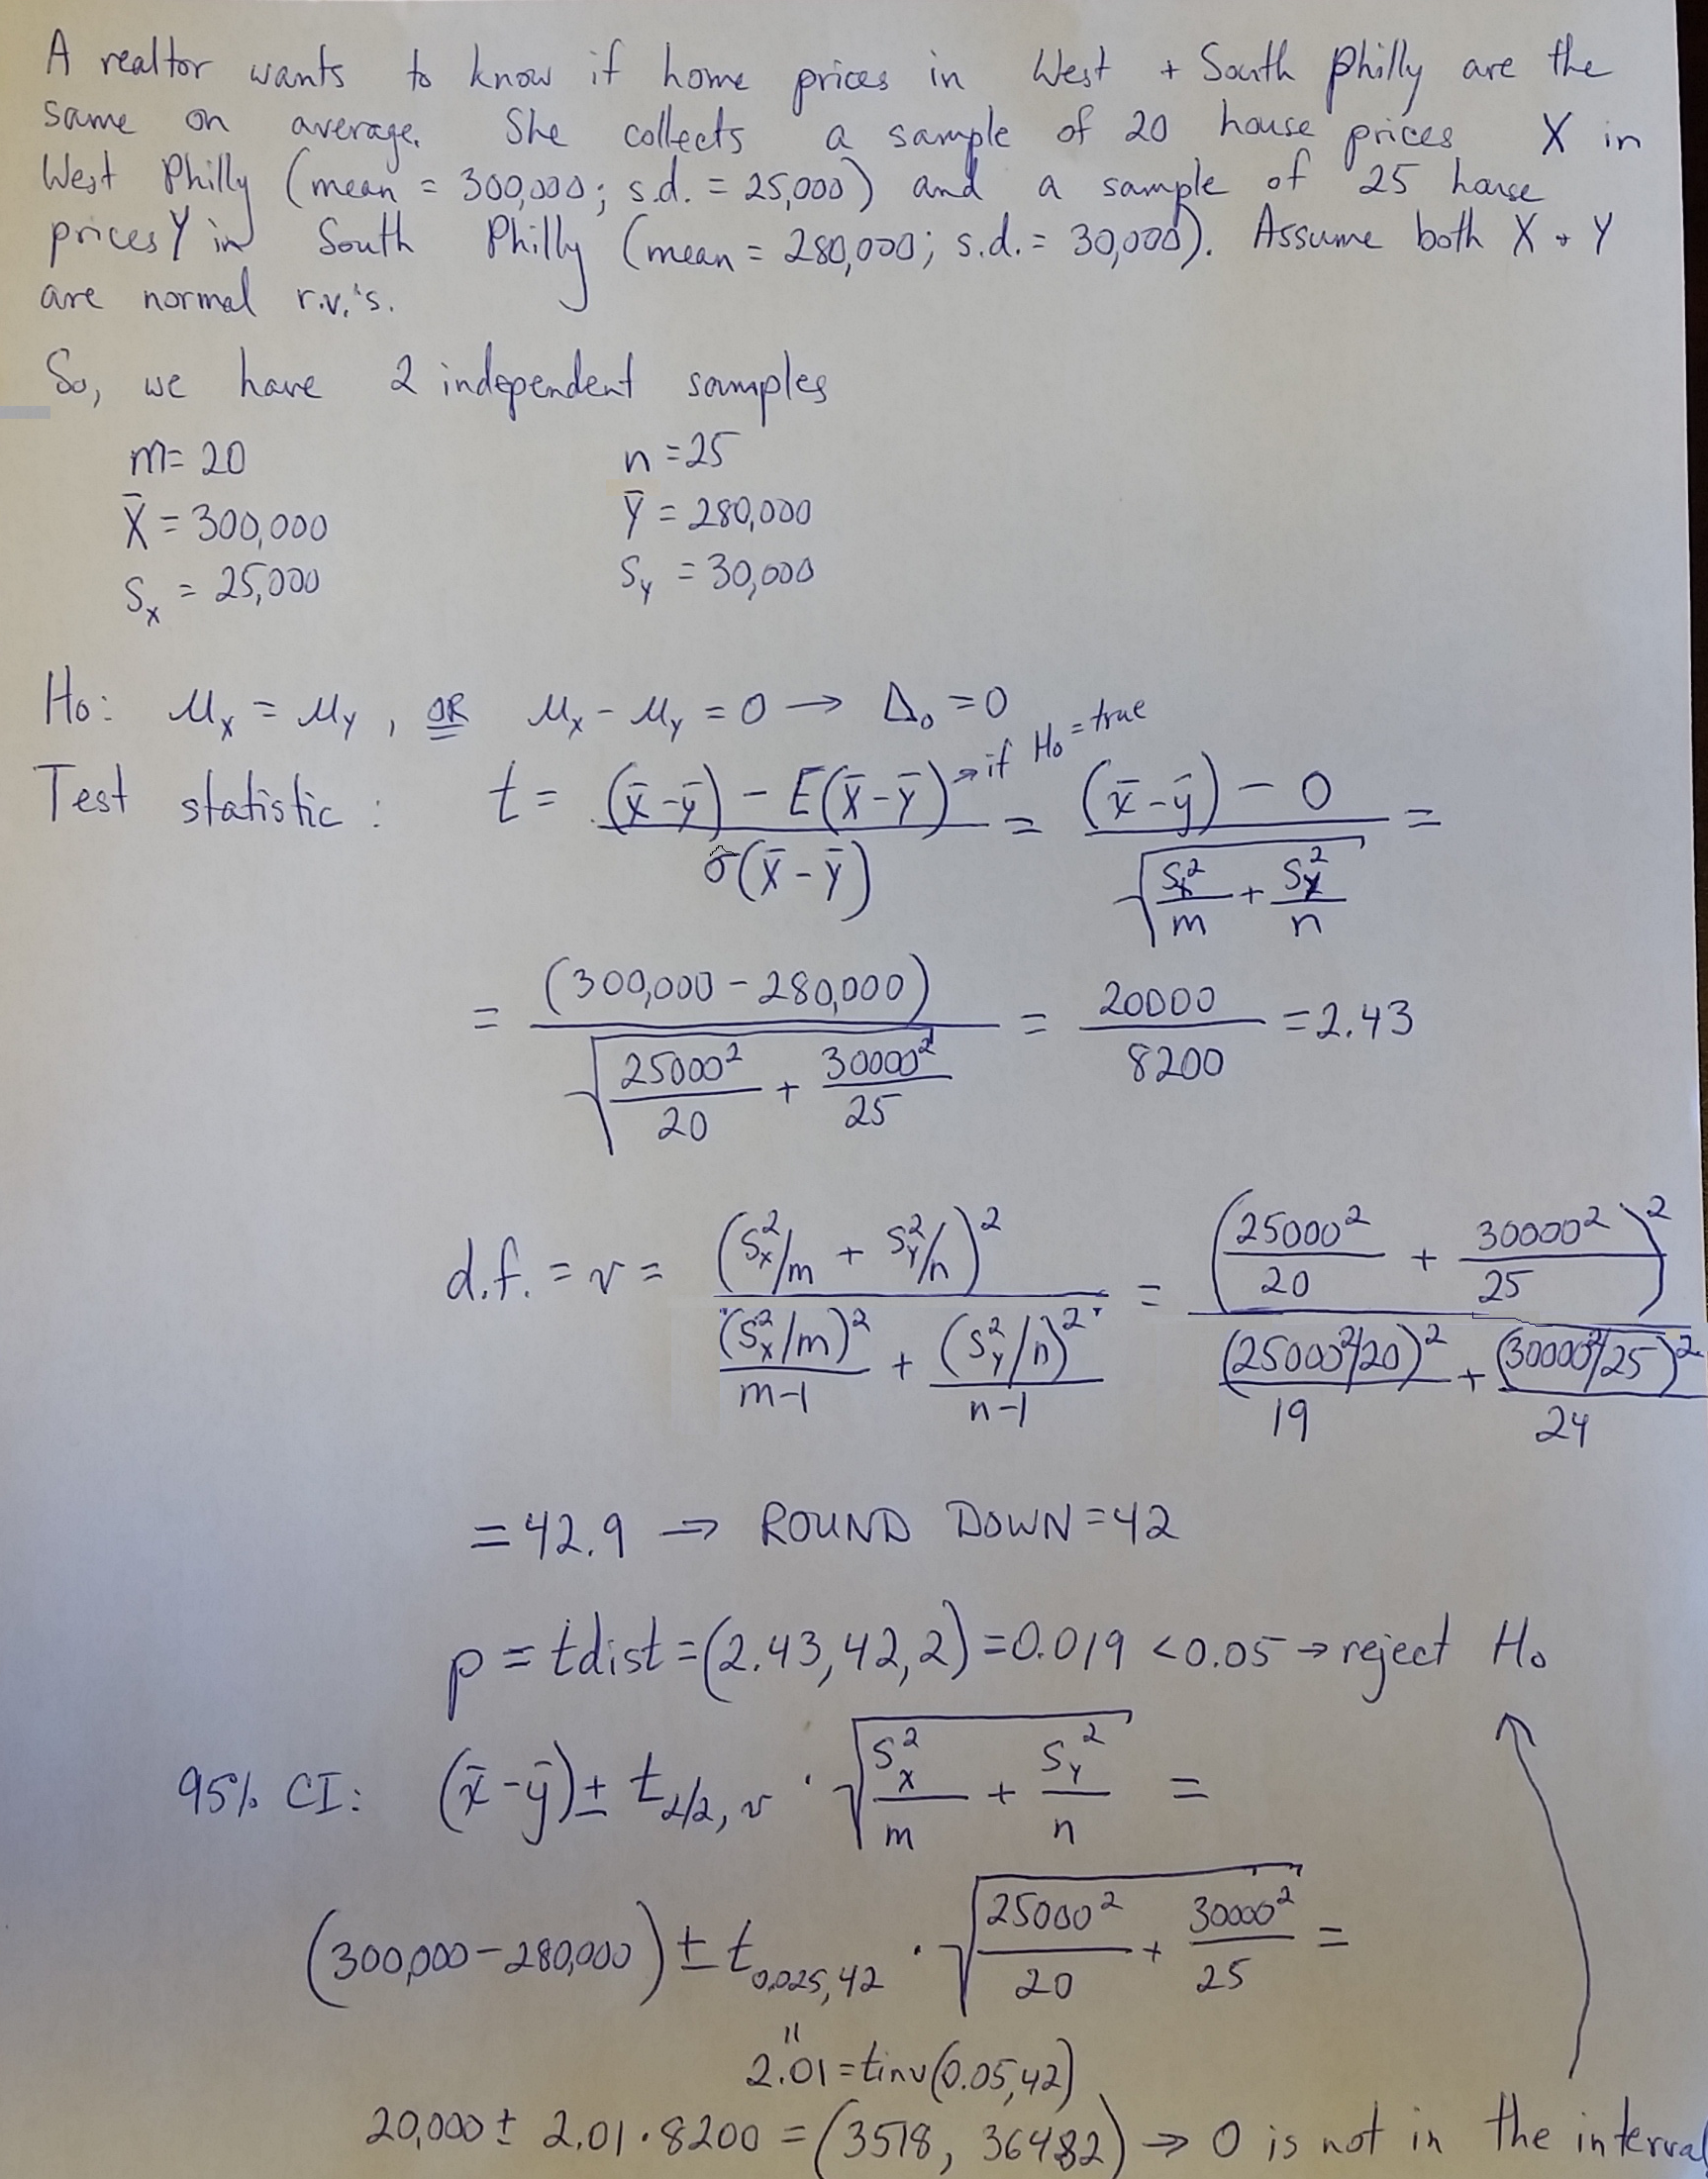 A realtor wants to know if home prices in West + South Philly are the
same on average. She collects a sample of 20 house prices X in
West Philly (mean = 300,000; s.d. = 25,000) and a sample of 25 house
prices Y in South Philly (mean = 280,000; s.d. = 30,000). Assume both X + Y
are normal r.v.'s.
So, we have 2 independent samples
m = 20 n = 25
X̄ = 300,000 Ȳ = 280,000
S_X = 25,000 S_Y = 30,000
H₀: μ_X = μ_Y, OR μ_X - μ_Y = 0 → Δ₀ = 0
Test statistic: t = ((x̄ - ȳ) - E(X̄ - Ȳ)) / σ̂(X̄ - Ȳ) → if H₀ = true = ((x̄ - ȳ) - 0) / √(S_X²/m + S_Y²/n) =
= (300,000 - 280,000) / √(25000²/20 + 30000²/25) = 20000/8200 = 2.43
d.f. = ν = (S_X²/m + S_Y²/n)² / ((S_X²/m)²/(m-1) + (S_Y²/n)²/(n-1)) = (25000²/20 + 30000²/25)² / ((25000²/20)²/19 + (30000²/25)²/24)
= 42.9 → ROUND DOWN = 42
p = tdist = (2.43, 42, 2) = 0.019 < 0.05 → reject H₀
95% CI: (x̄ - ȳ) ± t_α/2, ν · √(S_X²/m + S_Y²/n) =
(300,000 - 280,000) ± t_0.025, 42 · √(25000²/20 + 30000²/25) =
"
2.01 = tinv(0.05, 42)
20,000 ± 2.01 · 8200 = (3518, 36482) → 0 is not in the interval